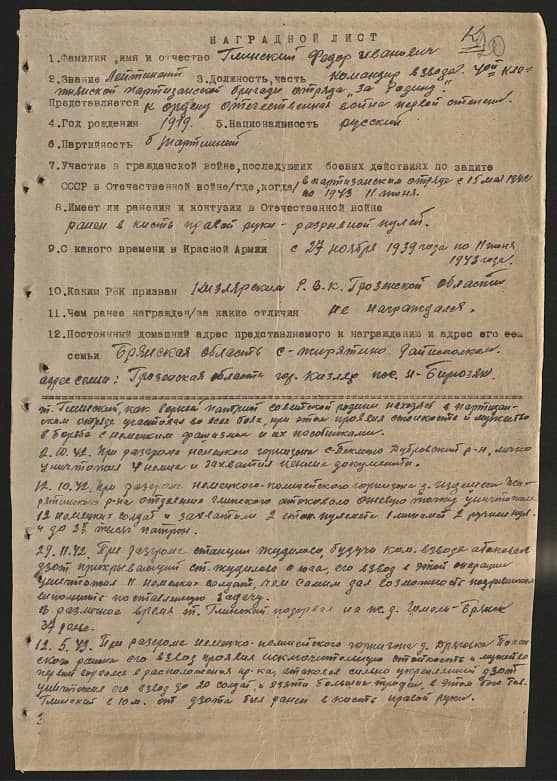 20
НАГРАДНОЙ ЛИСТ
1.Фамилия ,имя и отчество Глинский Федор Иванович
2.Звание Лейтенант 3.Должность,часть командир взвода
партизанской бригады отряда "За Родину".
Представляется к ордену Отечественная война первой степени.
4.Год рождения 1919. 5.Национальность русский
6.Партийность б/партийный
7.Участие в гражданской войне,последующих боевых действиях по защите
СССР в Отечественной войне/где,когда/ в партизанском отряде с 15 мая 1942
по 1943 11 июня.
8.Имеет ли ранения и контузии в Отечественной войне
ранен в кисть правой руки - разрывной пулей.
9.С какого времени в Красной Армии с 27 ноября 1939 года по 11 июня
1943 года.
10.Каким РВК призван Кизлярским Р.В.К. Грозенской области
11.Чем ранее награжден/за какие отличия не награждался.
12.Постоянный домашний адрес представляемого к награждению и адрес его се
семьи Брянская область с-Жирятино
адрес семьи: Грозенская область гор. Кизляр пос.
т. Глинский, как верный патриот советской родины находясь в партизан-
ском отряде участвовал во всех боях, при этом проявил стойкость и мужество
в борьбе с немецким фашизмом и их пособниками.
2.10.42. При разгроме немецкого гарнизона Дубровский р-н, лично
уничтожил 4 немца и захватил ценные документы.
12.10.42. При разгроме немецкого-полицейского гарнизона д.
р-на отделение Глинского атаковало огневую точку уничтожило
12 немецких солдат и захватили 2 стан. пулемета 1 миномет 2 ручных пул.
и до 3х тысяч патрон.
29.11.42. При разгроме станции Жудилово, будучи ком. взвода атаковал
дзот прикрывающий ст. Жудилово с юга, его взвод в этой операции
уничтожил 11 немецких солдат, тем самим дал возможность подрывникам
исполнить поставленную задачу.
В различное время т. Глинский подорвал на ж.д. Гомель-Брянск
рельс.
12.5.43. При разгроме немецко-полицейского гарнизона д.
ского района его взвод проявил исключительную стойкость и мужество
первый ворвался в расположение пр-ка, атаковал сильно укрепленный дзот
уничтожил его взвод до 20 солдат, и взяты большие трофеи, в этом бою тов.
Глинский в 10 м. от дзота был ранен в кисть правой руки.